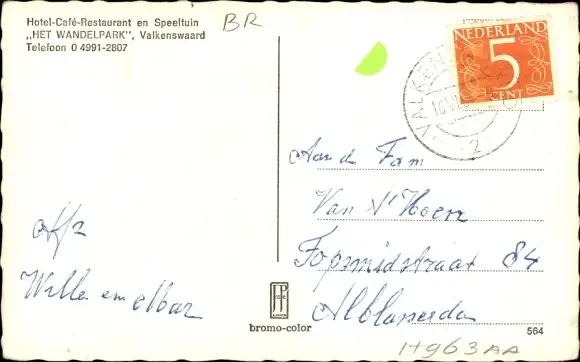 Hotel-Café-Restaurant en Speeltuin
„HET WANDELPARK", Valkenswaard
Telefoon 0 4991-2807
BR
NEDERLAND
5
CENT
VALKEN
2
Aan de Fam
Van 't Hoen
Fopsmidstraat 84
Alblasserdam
Afz
Willem en Elbar
bromo-color
564
H963AA